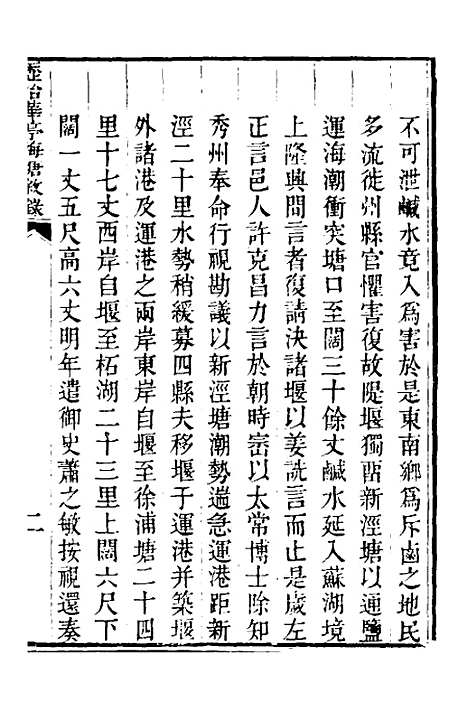 不可泄鹹水竟入爲害於是東南鄉爲斥鹵之地民
多流徙州縣官懼害復故隄堰獨畱新涇塘以通鹽
運海潮衝突塘口至闊三十餘丈鹹水延入蘇湖境
上隆興間言者復請決諸堰以姜詵言而止是歲左
正言邑人許克昌力言於朝時崈以太常博士除知
秀州奉命行視勘議以新涇塘潮勢湍急運港距新
涇二十里水勢稍緩募四縣夫移堰于運港并築堰
外諸港及運港之兩岸東岸自堰至徐浦塘二十四
里十七丈西岸自堰至柘湖二十三里上闊六尺下
闊一丈五尺高六丈明年遣御史蕭之敏按視還奏
歷治華亭海塘敘錄
二